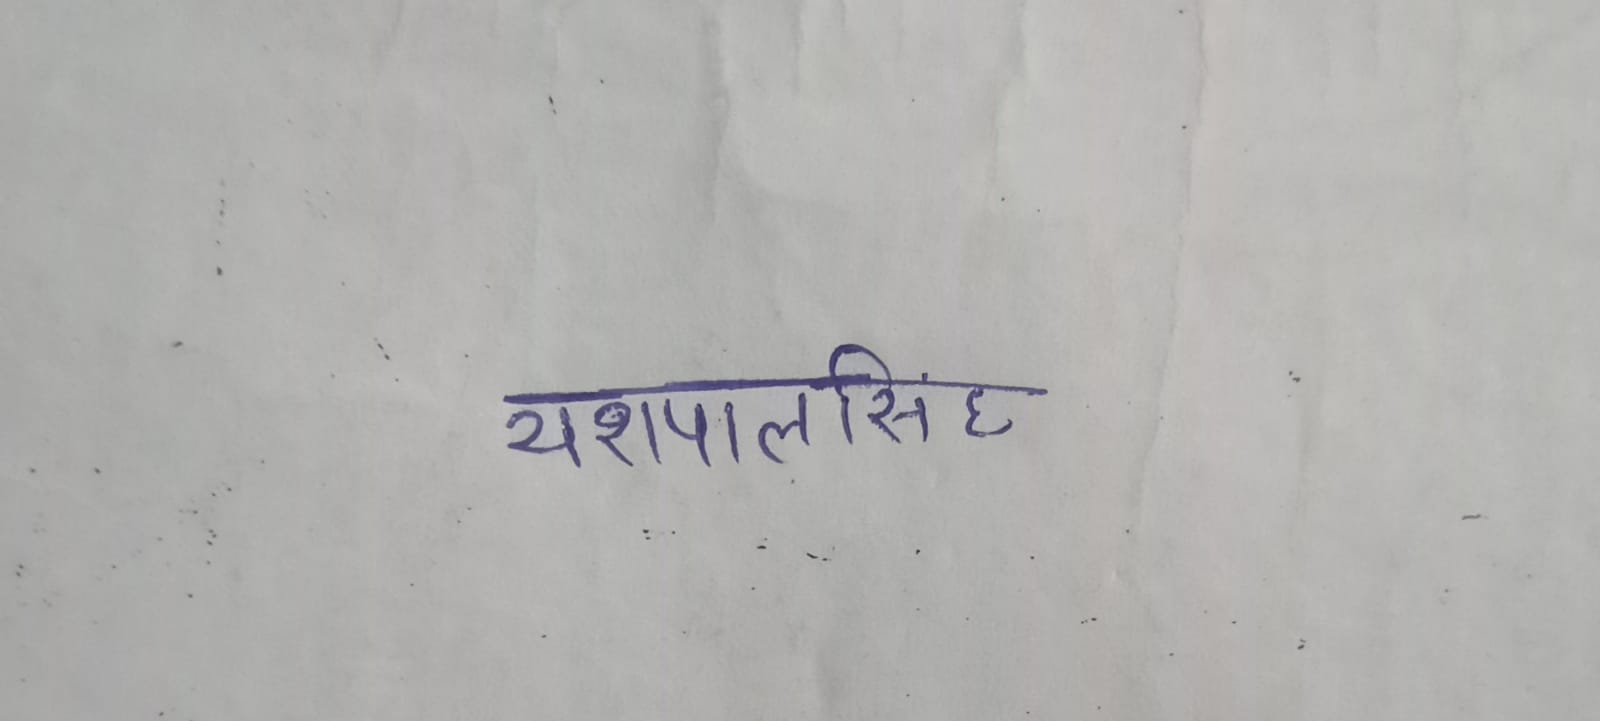 यशपालसिंह